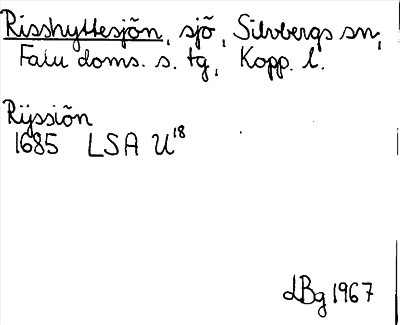 Risshyttesjön, sjö, Silvbergs sn,
Falu doms. s. tg, Kopp. l.
Rÿssiön
1685 LSA U18
LBg 1967